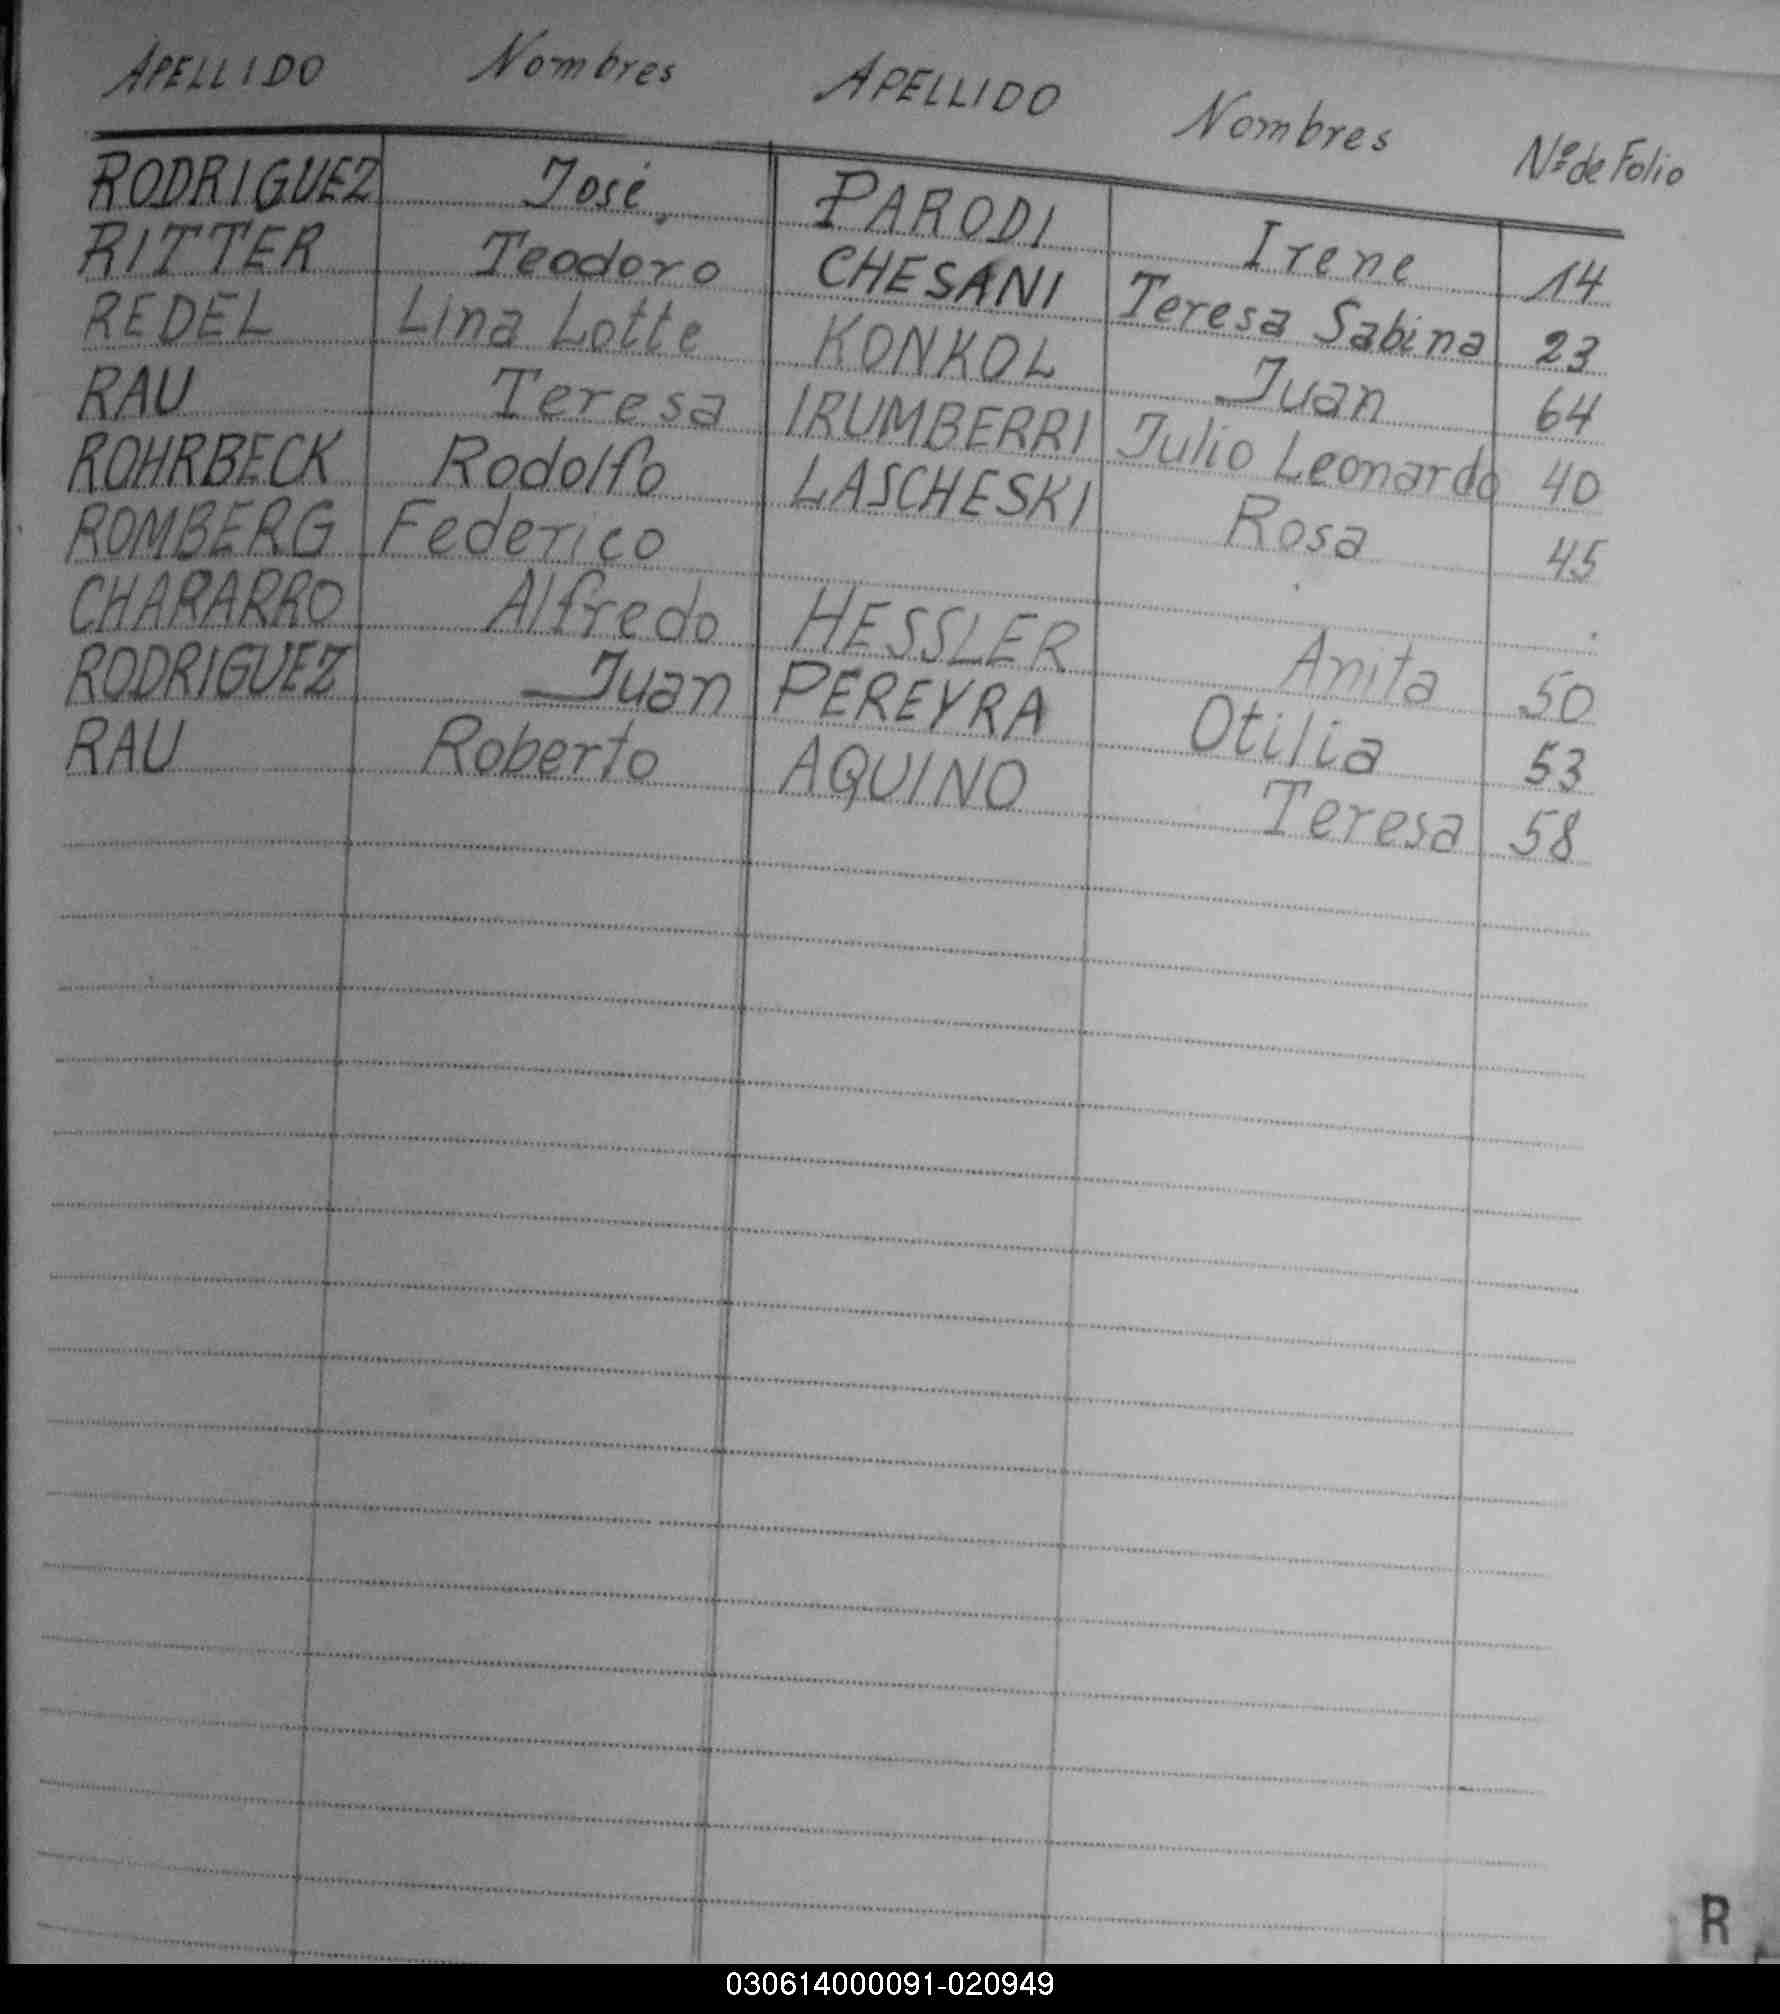 APELLIDO Nombres APELLIDO Nombres Nº de Folio
RODRIGUEZ José PARODI Irene 14
RITTER Teodoro CHESANI Teresa Sabina 23
REDEL Lina Lotte KONKOL Juan 64
RAU Teresa IRUMBERRI Julio Leonardo 40
ROHRBECK Rodolfo LASCHESKI Rosa 45
ROMBERG Federico
CHARARRO Alfredo HESSLER Anita 50
RODRIGUEZ Juan PEREYRA Otilia 53
RAU Roberto AQUINO Teresa 58
R
030614000091-020949